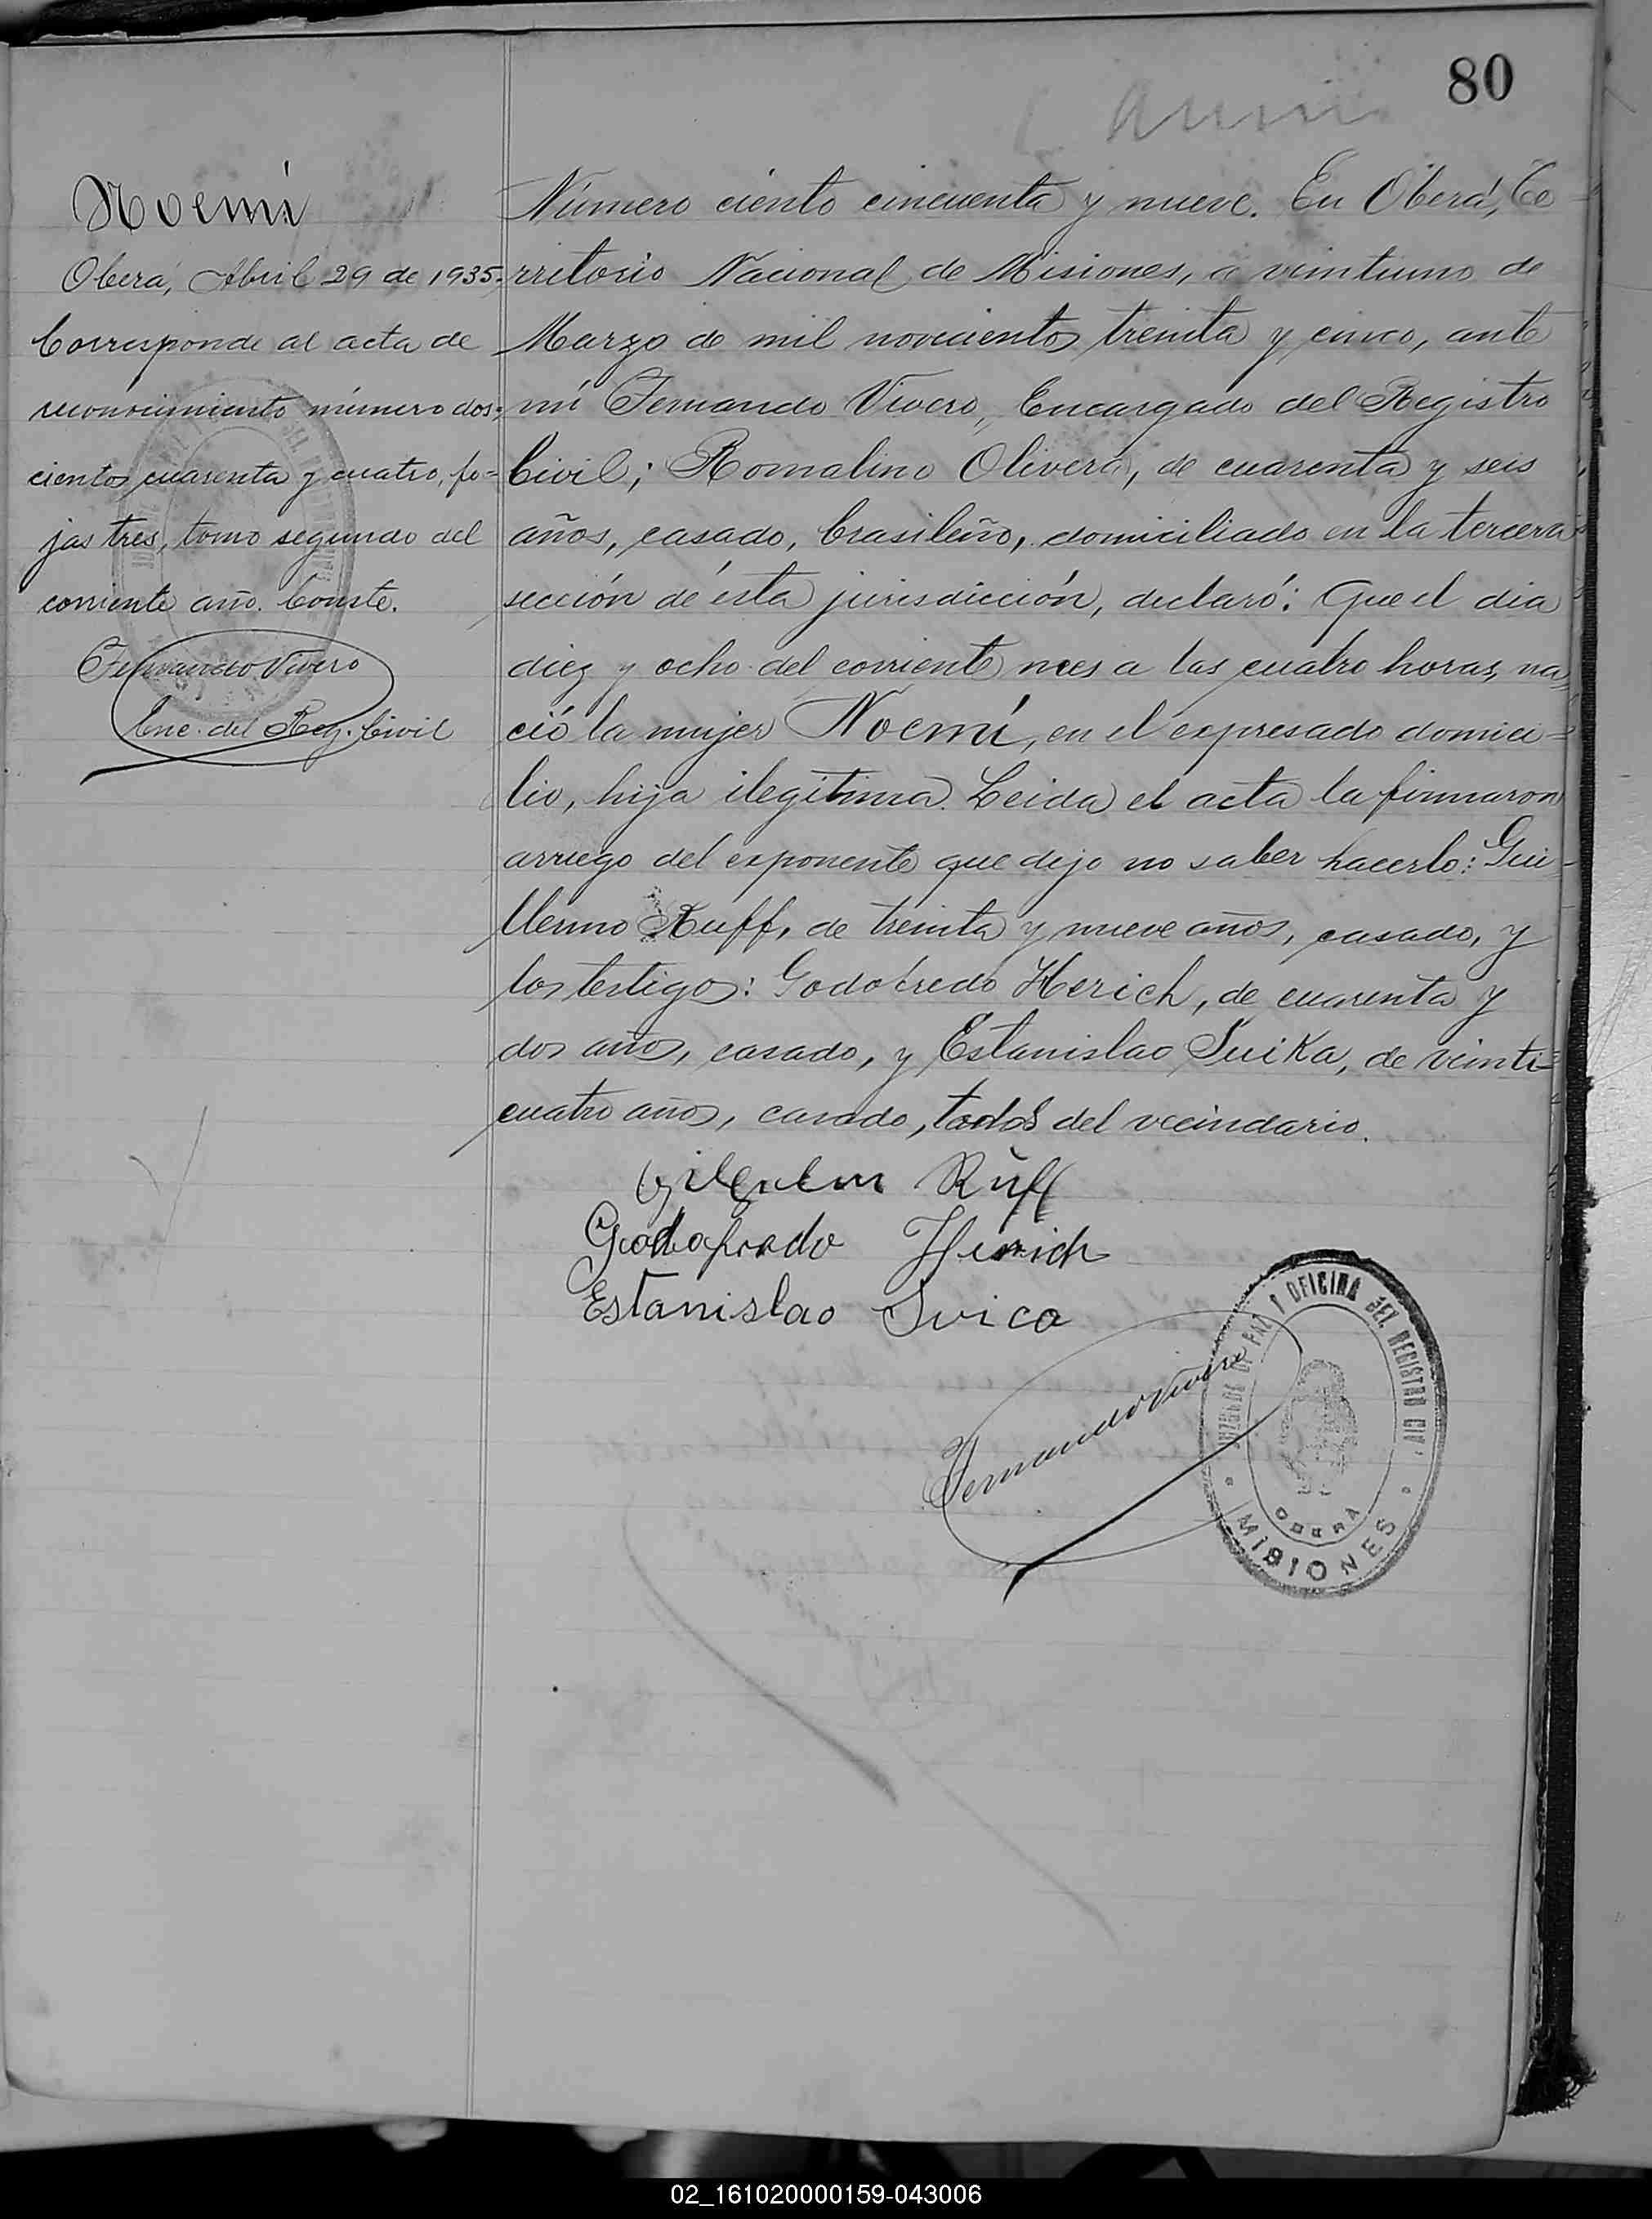 80
Noemí
Oberá, Abril 29 de 1935.
Corresponde al acta de
reconocimiento número dos-
cientos cuarenta y cuatro, fo-
jas tres, tomo segundo del
corriente año. Conste.
Fernando Vivero
Enc. del Reg. Civil
Número ciento cincuenta y nueve. En Oberá, Te-
rritorio Nacional de Misiones, a veintiuno de
Marzo de mil novecientos treinta y cinco, ante
mí Fernando Vivero, Encargado del Registro
Civil; Romalino Olivera, de cuarenta y seis
años, casado, brasileño, domiciliado en la tercera
sección de ésta jurisdicción, declaró: Que el dia
diez y ocho del corriente mes a las cuatro horas, na-
ció la mujer Noemí, en el expresado domici-
lio, hija ilegítima. Leida el acta la firmaron
arruego del exponente que dijo no saber hacerlo: Gui-
llermo Ruff, de treinta y nueve años, casado, y
los testigos: Godofredo Herich, de cuarenta y
dos años, casado, y Estanislao Suika, de veinti-
cuatro años, casado, todos del vecindario.
Rüff
Godofredo Henrich
Estanislao Svica
Fernando Vivero
JUZGADO DE PAZ Y OFICINA DEL REGISTRO CIV.
OBERA
MISIONES
02_161020000159-043006